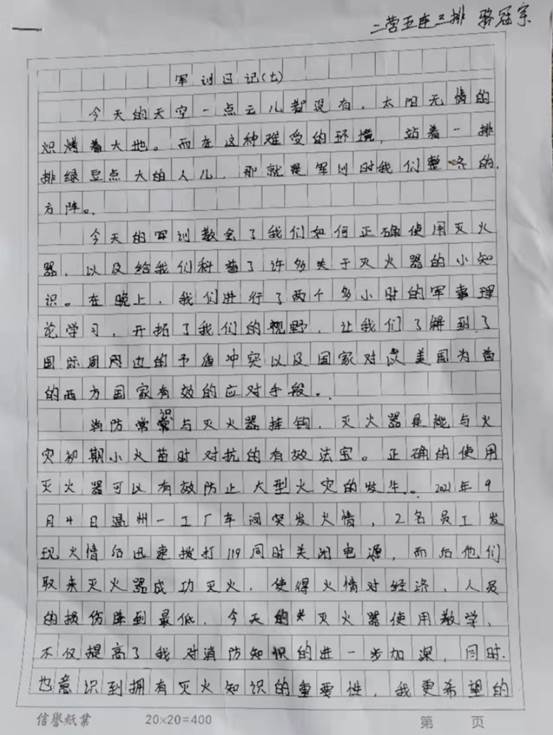 二营五连三排 骆冠宇
军训日记(七)
今天的天空一点云儿都没有，太阳无情的
炽烤着大地。而在这种难受的环境，站着一排
排绿豆点大的人儿，那就是军训时我们整齐的
方阵。
今天的军训教会了我们如何正确使用灭火
器，以及给我们科普了许多关于灭火器的小知
识。在晚上，我们进行了两个多小时的军事理
论学习，开拓了我们的视野，让我们了解到了
国际周边的矛盾冲突以及国家对美国为首
的西方国家有效的应对手段。
消防常识与灭火器挂钩，灭火器是能与火
灾初期小火苗时对抗的有效法宝。正确的使用
灭火器可以有效防止大型火灾的发生。2021年9
月4日温州一工厂车间突发火情，2名员工发
现火情后迅速拨打119同时关闭电源，而后他们
取来灭火器成功灭火，使得火情对经济，人员
的损伤降到最低，今天的灭火器使用教学，
不仅提高了我对消防知识的进一步加深，同时，
也意识到拥有灭火知识的重要性，我更希望的
信誉纸业 20×20=400 第 页